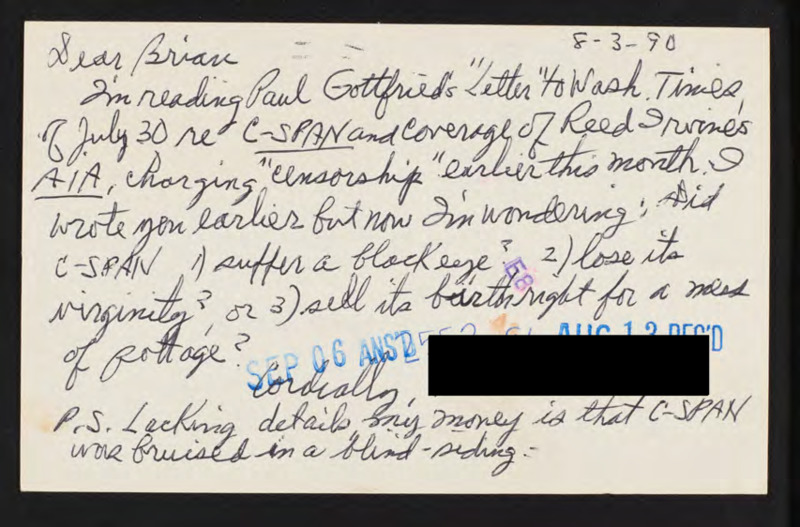 8-3-90
Dear Brian
I'm reading Paul Gottfried's "Letter" to Wash. Times,
of July 30 re C-SPAN and coverage of Reed Irvine's
AIA, charging "censorship" earlier this month. I
wrote you earlier but now I'm wondering: Did
C-SPAN 1) suffer a black eye? 2) lose its
virginity? or 3) sell its birthright for a mess
of pottage?
SEP 06 ANS'D AUG 13 REC'D
Cordially,
P.S. Lacking details my money is that C-SPAN
was bruised in a blind-siding.-